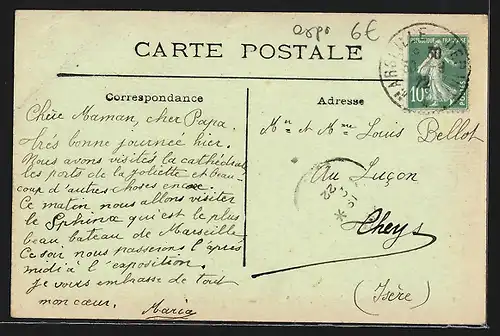 expo 6€
CARTE POSTALE
Correspondance
Adresse
MARSEILLE
10c
Chère Maman, cher Papa.
Très bonne journée hier.
Nous avons visités la cathédrale
les ports de la Joliette et beau-
coup d'autres choses encore.
Ce matin nous allons visiter
le Sphinx qui est le plus
beau bateau de Marseille
Ce soir nous passerons l'après
midi à l'exposition.
je vous embrasse de tout
mon cœur.
Maria
Mr et Mme Louis Bellot
Au Luçon
Theys
(Isère)
22